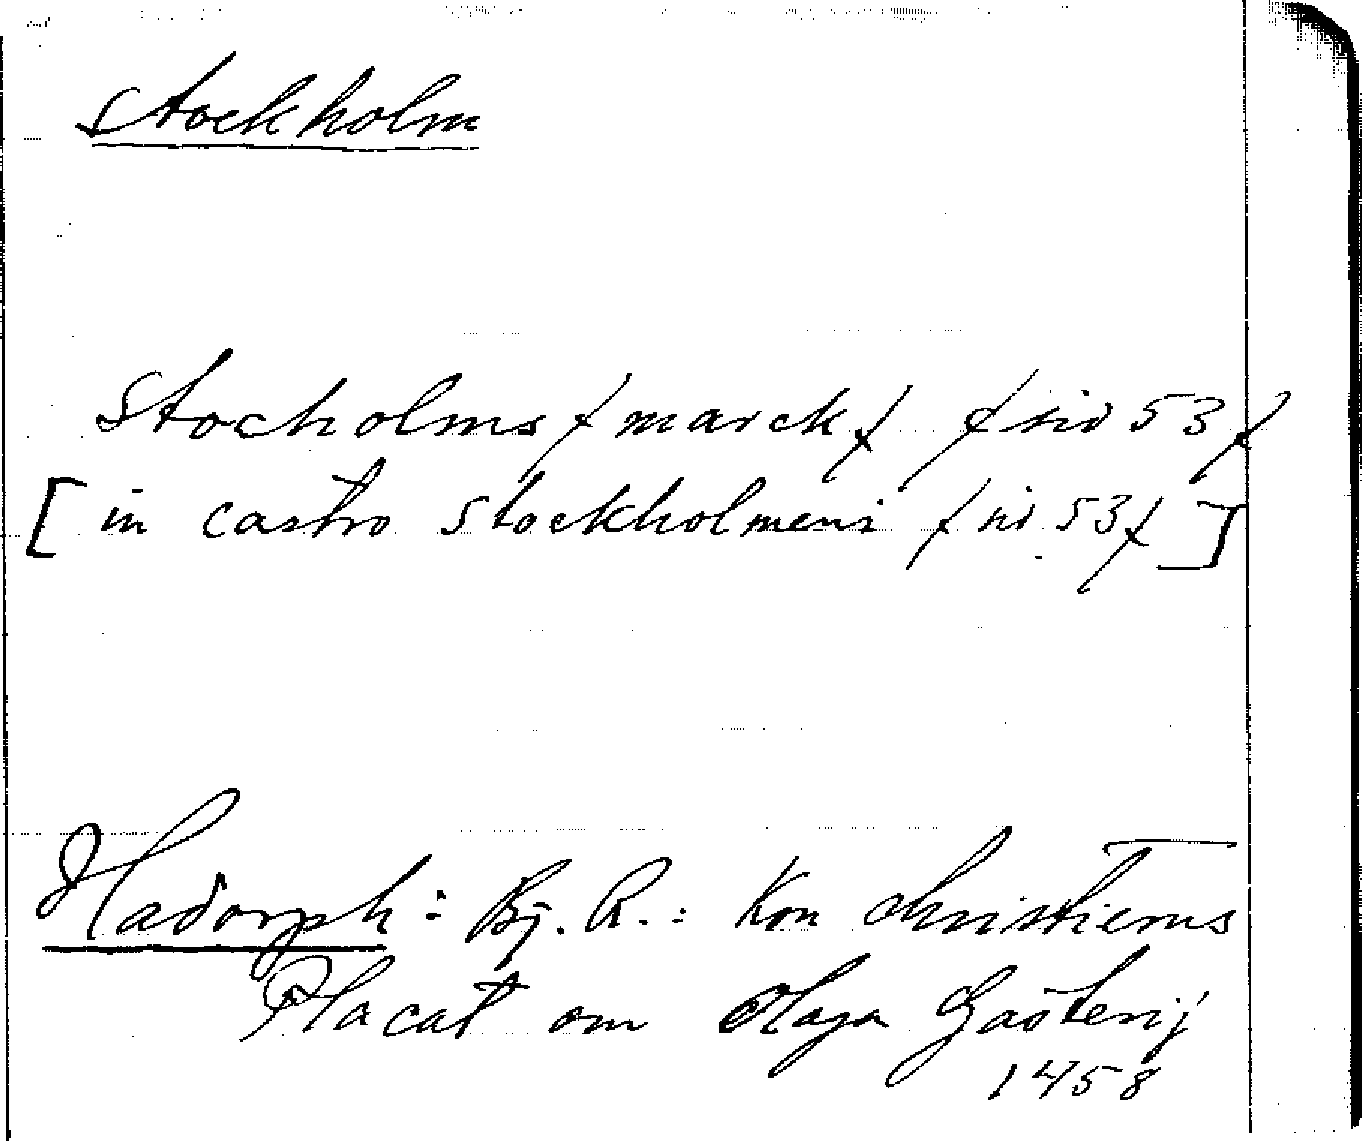 Stockholm
Stocholms /marck/ /sid 53/
[in castro Stockholmens /sid 53/]
Hadorph: Bj. R.: Kon Christierns
Placat om Olaga Gästerij
1458